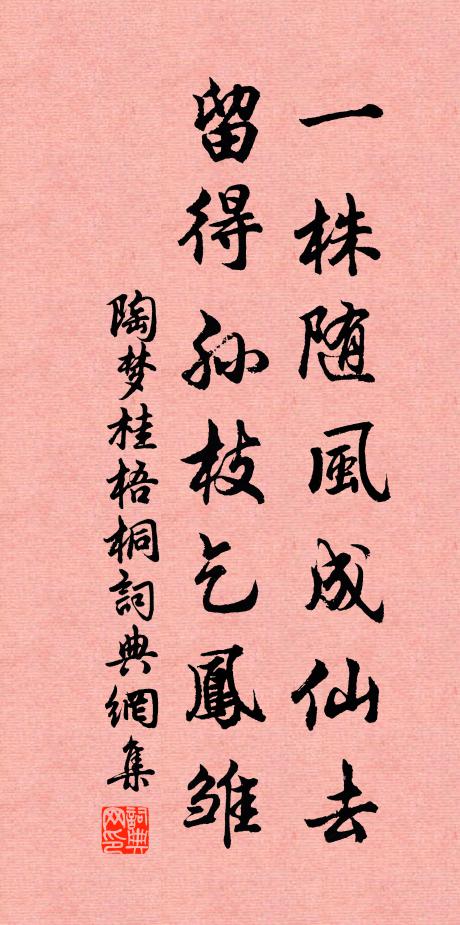 一株随風成仙去
留得孙枝乞鳳雏
陶梦桂梧桐詞典網集
詞典网印